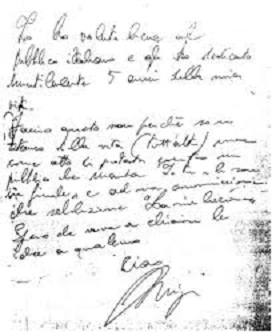 Io ho voluto bene al
pubblico italiano e gli ho dedicato
inutilmente 5 anni della mia
vita.
Faccio questo non perché sono
stanco della vita (tutt'altro) ma
come atto di protesta un
pubblico che manda Io tu e le rose
in finale e ad una commissione
che seleziona
Spero che serva a chiarire le
idee a qualcuno
Ciao
Luigi